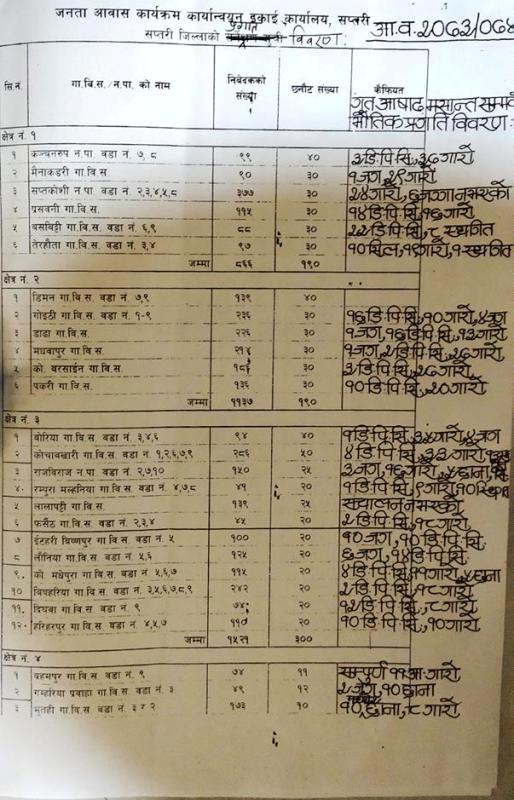 जनता आवास कार्यक्रम कार्यान्वयन इकाई कार्यालय, सप्तरी
सप्तरी जिल्लाको प्रगति विवरण: आ.व. २०७३/०७४
सि.नं. गा.बि.स./न.पा. को नाम निवेदकको संख्या छनौट संख्या कैफियत
गत आषाढ मसान्त सम्मको भौतिक प्रगति विवरण:
क्षेत्र नं. १
१ कन्चनरुप न.पा. वडा नं. ७, ८ ९९ ४० ३ डि.पि.सि, ३७ गारो
२ मैनाकडरी गा.वि.स ९० ३० १ जग, २९ गारो
३ सप्तकोशी न.पा. वडा नं. २,३,४,५,८ ३७७ ३० २४ गारो, ६ जग्गा नभएको
४ प्रसवनी गा.वि.स. ११५ ३० १४ डि.पि.सि, १६ गारो
५ बसबिट्टी गा.वि.स. वडा नं. ६,९ ८८ ३० २२ डि.पि.सि, ८ स्थगित
६ तेरहौता गा.वि.स. वडा नं. ३,४ ९७ ३० १० सिल, १९ गारो, १ स्थगित
जम्मा ८६६ १९०
क्षेत्र नं. २
१ डिमन गा.वि.स. वडा नं. ७,९ १३९ ४०
२ गोइठी गा.वि.स. वडा नं. १-९ २३६ ३० १६ डि.पि.सि, १० गारो, ४ जग
३ ढाढा गा.वि.स. २२६ ३० १ जग, १६ डि.पि.सि, १३ गारो
४ मधवापुर गा.वि.स. २१४ ३० १ जग, २ डि.पि.सि, २७ गारो
५ को. बरसाईन गा.वि.स. १८६ ३० ३ डि.पि.सि, २७ गारो
६ पकरी गा.वि.स. १३६ ३० १० डि.पि.सि, २० गारो
जम्मा ११३७ १९०
क्षेत्र नं. ३
१ बोरिया गा.वि.स. वडा नं. ३,४,६ ९४ ४० १ डि.पि.सि, ३५ गारो, ४ जग
२ कोचाबखारी गा.वि.स. वडा नं. १,२,६,७,९ २८६ ५० ४ डि.पि.सि, ३३ गारो
३ राजविराज न.पा. वडा नं. २,७,१० १५० २५ ३ जग, १६ गारो, ५ छाना
४. रम्पुरा मल्हनिया गा.वि.स. वडा नं. ४,७,८ ४१ २० १ डि.पि.सि, ९ गारो, १० स्थगित
५ लालापट्टी गा.वि.स. १३९ २५ संचालन नभएको
६ फर्सेठ गा.वि.स. वडा नं. २,३,४ ४५ २० २ डि.पि.सि, १८ गारो
७ ईटहरी विष्णपुर गा.वि.स. वडा नं. ५ १०० २० १० जग, १० डि.पि.सि.
८ लौनिया गा.वि.स. वडा नं. ५,६ १२५ २० ६ जग, १४ डि.पि.सि.
९. को मधेपुरा गा.वि.स. वडा नं. ५,६,७ ११५ २० ४ डि.पि.सि, ११ गारो, ५ छाना
१० विषहरिया गा.वि.स. वडा नं. ३,५,६,७,८,९ २४२ २० २ डि.पि.सि, १८ गारो
११. दिघवा गा.वि.स. वडा नं. ९ ७४ २० १२ डि.पि.सि, ८ गारो
१२. हरिहरपुर गा.वि.स. वडा नं. ४,५,७ ११० २० १० डि.पि.सि, १० गारो
जम्मा १५२१ ३००
क्षेत्र नं. ४
१ बहमपुर गा.वि.स. वडा नं. ९ ७४ ११ सम्पूर्ण ११ आ गारो
२ गम्हरिया प्रवाहा गा.वि.स. वडा नं. ३ ४९ १२ २ जग, १० छाना
३ मुतही गा.वि.स. वडा नं. ३ र २ १७३ १० छाना, ८ गारो